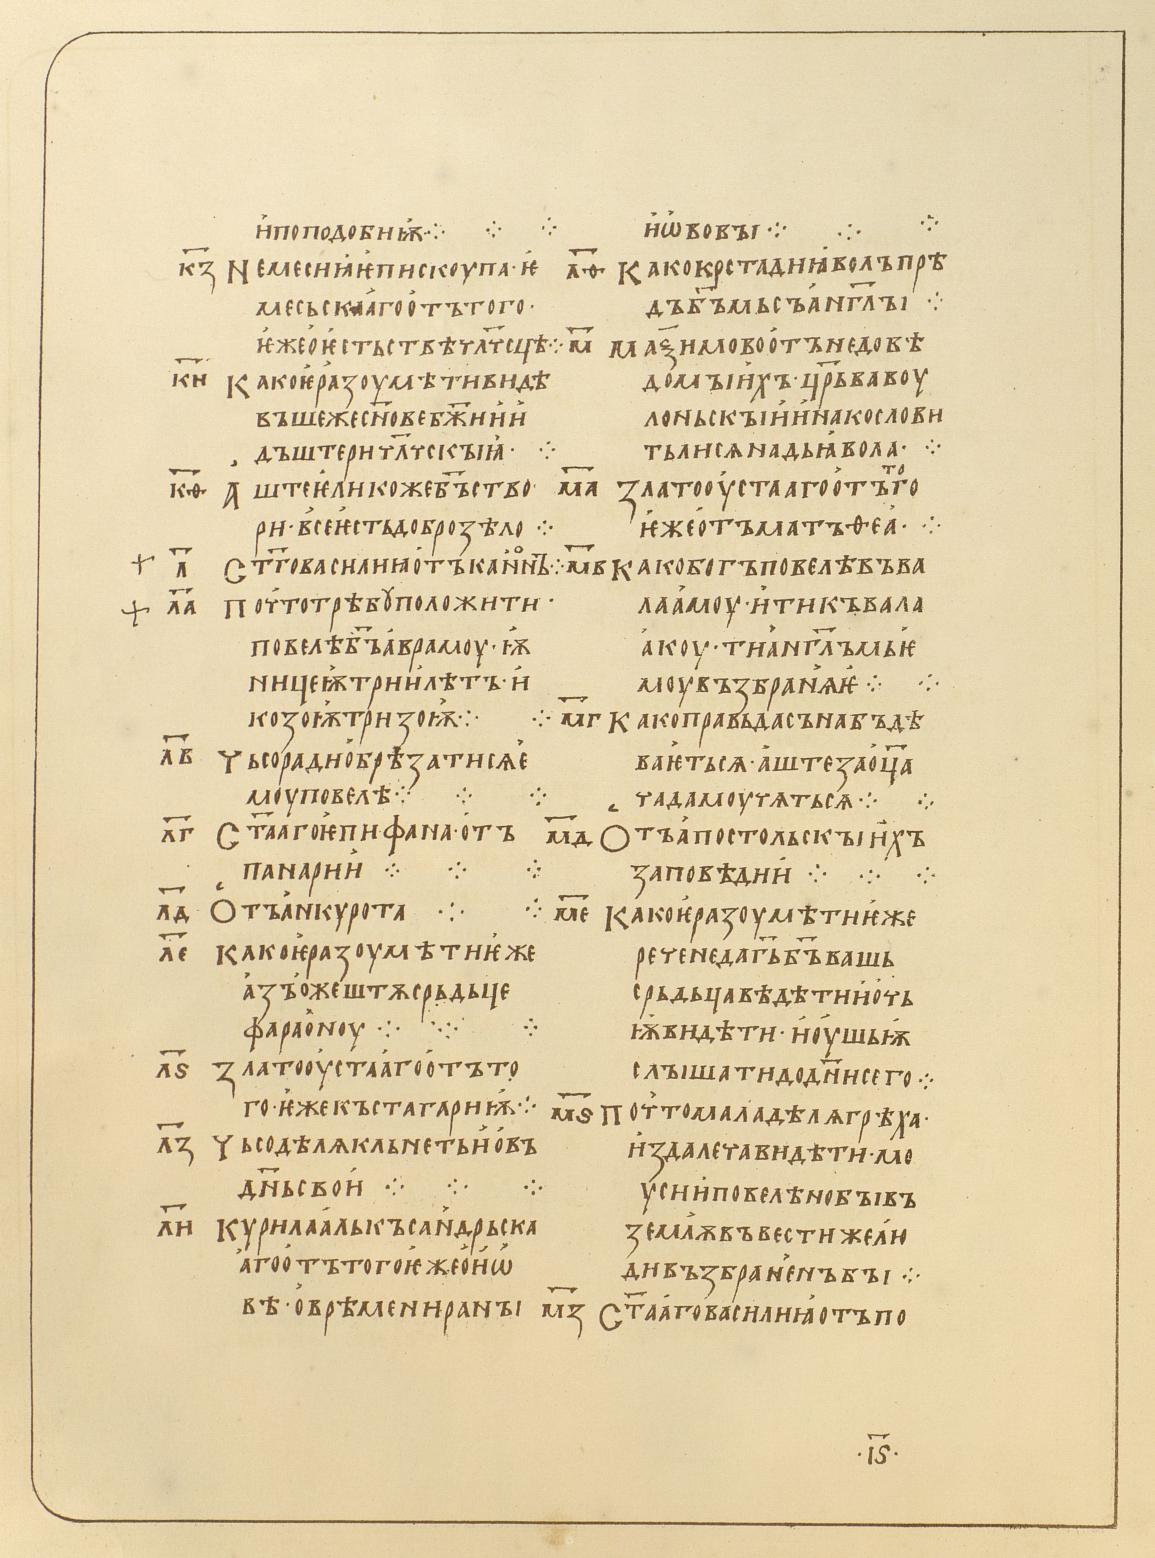 и҆поподобни҆ꙗ ⁘ ⁘ ⁘
к҃з НемесиꙖи҆ѥпискоупа · и҆ѥ
месьскааго ѡтътого ·
и҆жео҆ѥстьствѣчл҃чсцѣ ⁘
к҃н Како ѥ҆разоумѣтивидѣ
въшежесн҃овебж҃ии҆и҆
дъштеричл҃чскыꙗ · ⁘
к҃ѳ Аште ѥ҆ликожеб҃ъство
ри · всеѥ҆стьдоброзѣло ⁘
л҃ Ст҃гоВасилиꙗ о҆тъканⷪ҇нъ ⁘
л҃а Почтотрѣбꙋположити ·
повелѣб҃ъаврамоу · ѭ
ницеѭтриилѣтъ · и҆
козоѭтризоѭ ⁘ ⁘
л҃в Чьсорадио҆брѣзатисѧѥ
моуповелѣ ⁘ ⁘ ⁘
л҃г Ст҃ааго ѥ҆пифана · о҆тъ
панарии҆ ⁘ ⁘ ⁘
л҃д Отъа҆нкурота ⁘ ⁘
л҃е Како ѥ҆разоумѣтии҆ѥже
а҆зъо҆жештѫсрьдьце
фарао҆ноу ⁘ ⁘ ⁘
л҃ѕ Златооу҆стааго о҆тъто
го · ѥ҆жекъстагариѭ ⁘
л҃з Чьсодѣлѧкльнетьи҆о҆въ
дн҃ьсвои҆ ⁘ ⁘ ⁘
л҃н Курилаа҆лькъсандрьска
а҆го о҆тътого ѥ҆жео҆и҆ѡ
вѣ · о҆врѣменираны
и҆ѡвовы ⁘ ⁘ ⁘
л҃ѳ Како крстадиꙗволъпрѣ
дъб҃ъмьсъанг҃лы ⁘
м҃ Маѯимово о҆тънедовѣ
домыи҆хъ · цр҃ьвавоу
лоньскыи҆и҆инакослови
тьлисѧнадьꙗвола · ⁘
м҃а Златооу҆стааго о҆тътого
ѥ҆жео҆тъматъѳеа҆ · ⁘
м҃в Како богъповелѣвъва
лаа҆моу · и҆тикъвала
а҆коу · тиа҆нг҃лъмьѥ
моувъзбранꙗѥ ⁘ ⁘
м҃г Како правьдасънабъдѣ
ваѥ҆тьсѧ · а҆штезао҆ц҃а
чадамоучѧтьсѧ ⁘ ⁘
м҃д Отъа҆постольскыи҆хъ
заповѣдии҆ ⁘ ⁘ ⁘
м҃е Како ѥ҆разоумѣтии҆ѥже
реченедагь҃б҃ъвашь
срьдьцавѣдѣтии҆о҆чь
ѭвидѣти · и҆оу҆шьѭ
слышатидодн҃исего ⁘
м҃ѕ Почтомаладѣлѧгрѣха ·
и҆здалечавидѣти · мо
у҆сии҆повелѣнобывъ
землѭвъвестижели
дивъзбране҆нъбы ⁘
м҃з Ст҃ааговасилиꙗо҆тъпо
· і҃ѕ ·